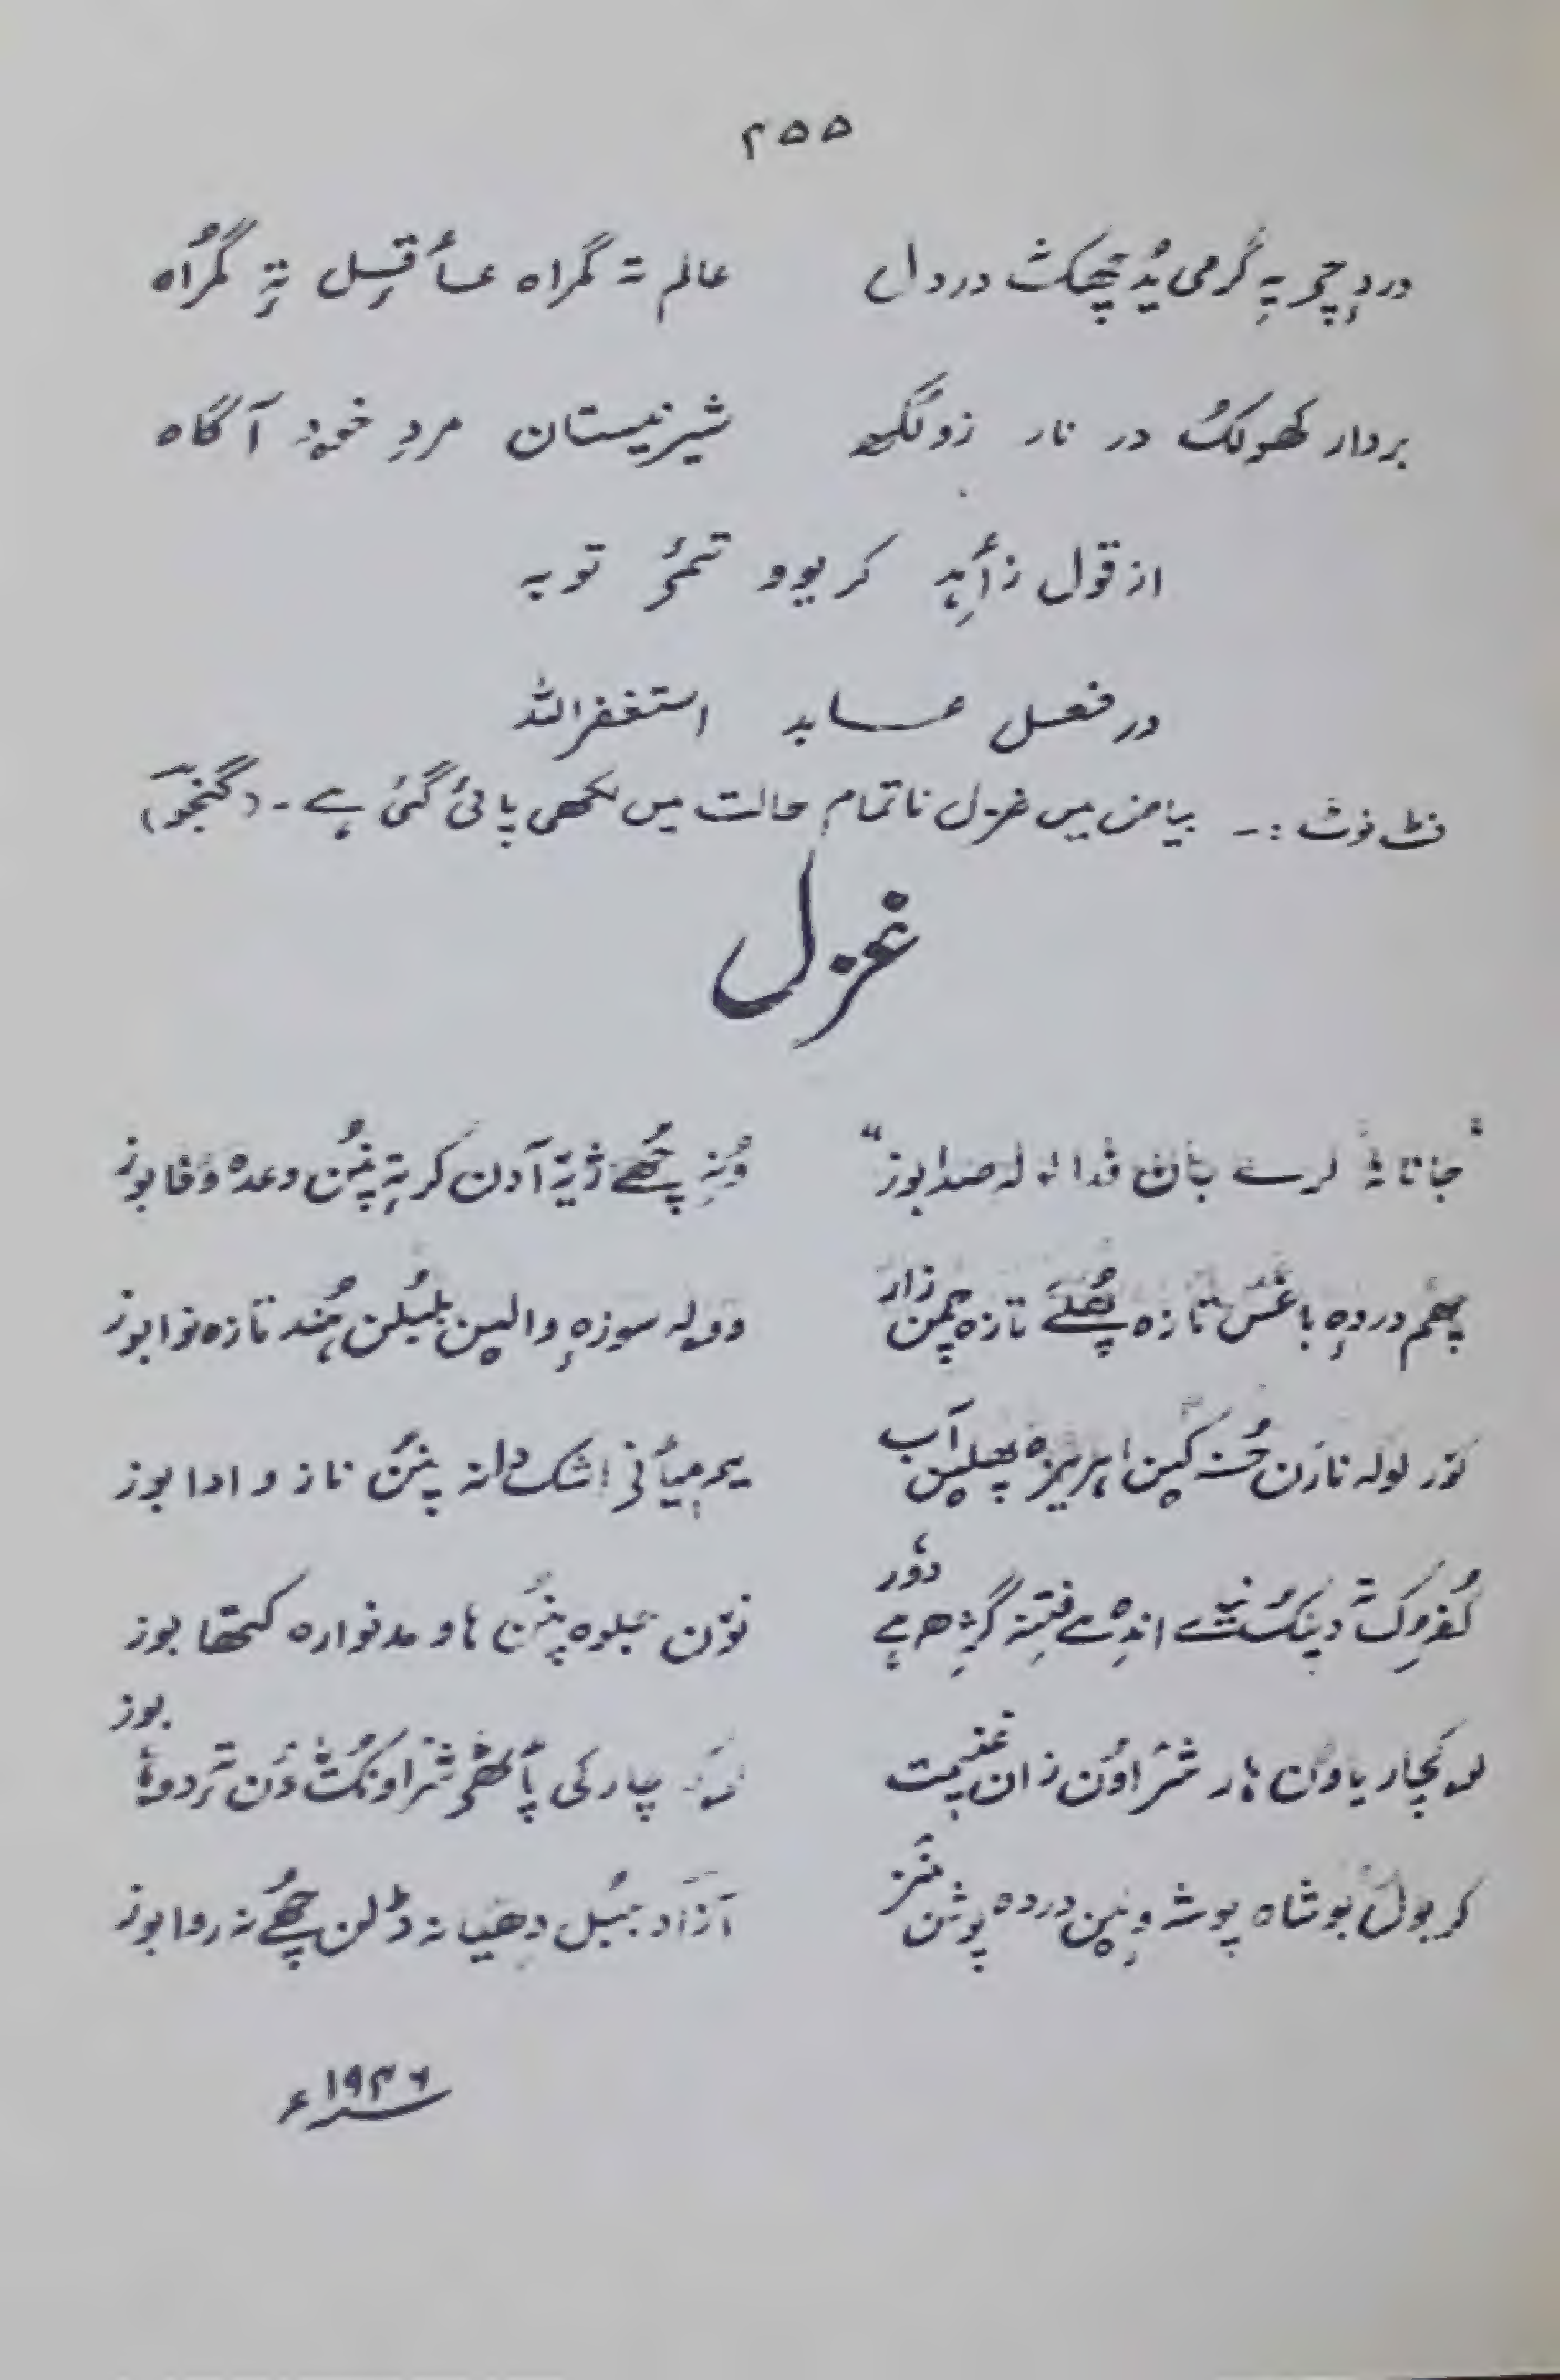 ۲۵۵
دردٕچر یہِ گرمی یُد چھکٹ درد اے عالم تہ گمراہ عأقِل تہٕ گمُراہ
بردار کھولکُ در نار زولکھ شیرِ نیستان مردِ خود آگاہ
از قول زأہِد کریوو تمۍ توبہ
در فعل عابد استغفراللہ
فٹ نوٹ :۔ بیاض میں غزل ناتمام حالت میں لکھی پائی گئی ہے۔ (گنجوؔ)
غزل
"جانانہٕ لرے پان فدا لولہ صدا بوز" وُنہِ چھُے ژےٚ آدن کر تہٕ پنُن وعدہ وفا بوز
چھم دردہٕ باغس تازہ پھُلے تازہ چمن زار وولہ سوزہٕ والین بلبُلن ہُند تازہ نوا بوز
لولہ نازن حُسنہ کین آب یہ میأنی اشک دانہ پنُن ناز و ادا بوز
کُفرُک تہ دینُک اندٕے فتنہٕ گژھہِ دوٗر نوٚن جلوہ پنُن ہاو مدنوارہ کتھا بوز
یاوُن ہار شرٛاوُن زان غنیمت پأٹھۍ شرٛاونکُٹ بوز
کر بول بوشاہ پوشہٕ وٕنین دردہ پوشن منز آزاد بُلبُل دھیانہ ڈلن چھُے نہ روا بوز
۱۹۳۶ء